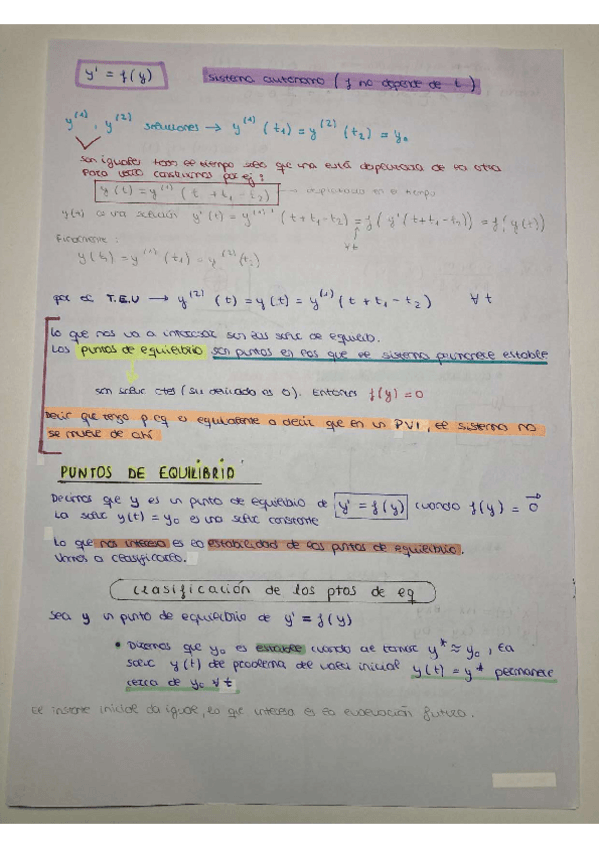 y' = f(y)   sistema autónomo ( f no depende de t )
y⁽¹⁾, y⁽²⁾ soluciones → y⁽¹⁾(t₁) = y⁽²⁾(t₂) = y₀
son iguales todo el tiempo solo que una está desplazada de la otra
Para verlo construimos por ej:
y(t) = y⁽¹⁾(t + t₁ - t₂) → desplazada en el tiempo
y(t) es una solución y'(t) = y⁽¹⁾'(t + t₁ - t₂) = f(y'(t + t₁ - t₂)) = f(y(t))
∀t
Finalmente:
y(t₂) = y⁽¹⁾(t₁) = y⁽²⁾(t₂)
por el T.E.U → y⁽²⁾(t) = y(t) = y⁽¹⁾(t + t₁ - t₂)   ∀t
Lo que nos va a interesar son las soluc de equilib.
Los puntos de equilibrio son puntos en los que el sistema permanece estable
son soluc ctes (su derivada es 0). Entonces f(y) = 0
Decir que tengo p eq es equivalente a decir que en un PVI, el sistema no
se mueve de ahí
PUNTOS DE EQUILIBRIO
Decimos que y es un punto de equilibrio de y' = f(y) cuando f(y) = 0⃗
La soluc y(t) = y₀ es una soluc constante
Lo que nos interesa es la estabilidad de los puntos de equilibrio.
Vamos a clasificarlo.
Clasificación de los ptos de eq
Sea y un punto de equilibrio de y' = f(y)
• Diremos que y₀ es estable cuando al tomar y* ≈ y₀, la
soluc y(t) de problema de valor inicial y(t) = y* permanece
cerca de y₀ ∀t
El instante inicial da igual, lo que interesa es la evolución futura.